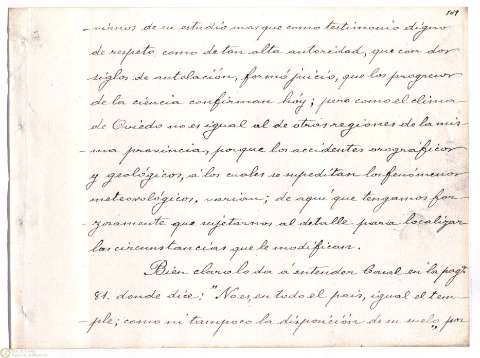 109
-virnos de su estudio mas que como testimonio digno
de respeto como de tan alta autoridad, que con dos
siglos de antelación, formó juicio, que los progresos
de la ciencia confirman hoy; pero como el clima
de Oviedo no es igual al de otras regiones de la mis-
-ma provincia, porque los accidentes orográficos
y geológicos, a los cuales se supeditan los fenómenos
meteorológicos, varian; de aquí que tengamos for-
-zosamente que sujetarnos al detalle para localizar
las circunstancias que le modifican.
Bien claro lo da á entender Casal en la pagª
81. donde dice; "No es, en todo el pais, igual el tem-
-ple; como ni tampoco la disposición de su suelo,, por